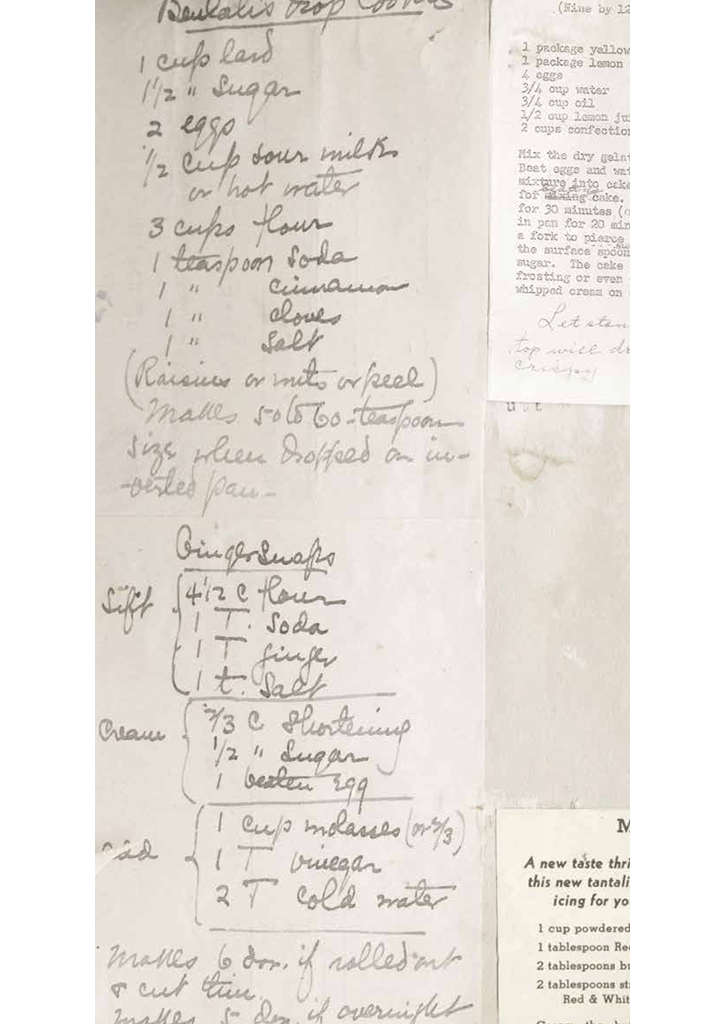 Beulah's Drop Cookies
1 cup lard
1 1/2 " Sugar
2 eggs
1/2 cup sour milk
or hot water
3 cups flour
1 teaspoon Soda
1 " cinnamon
1 " cloves
1 " Salt
(Raisins or nuts or peel)
Makes 50 to 60 - teaspoon
size when dropped on in-
-verted pan -
Ginger Snaps
Sift
4 1/2 C flour
1 T. Soda
1 T ginger
1 t. Salt
Cream
2/3 C Shortening
1/2 " Sugar
1 beaten Egg
add
1 cup molasses (or 2/3)
1 T vinegar
2 T cold water
Makes 6 doz. if rolled out
& cut thin.
Makes 5 doz if overnight
(Nine by 12
1 package yellow
1 package lemon
4 eggs
3/4 cup water
3/4 cup oil
1/2 cup lemon ju
2 cups confection
Mix the dry gela
Beat eggs and wa
mixture into cake
for mixing cake.
for 30 minutes (
in pan for 20 min
a fork to pierce
the surface spoon
sugar. The cake
frosting or even
whipped cream on
Let stan
top will dr
crispy
M
A new taste thri
this new tantali
icing for yo
1 cup powdered
1 tablespoon Re
2 tablespoons bu
2 tablespoons st
Red & Whit